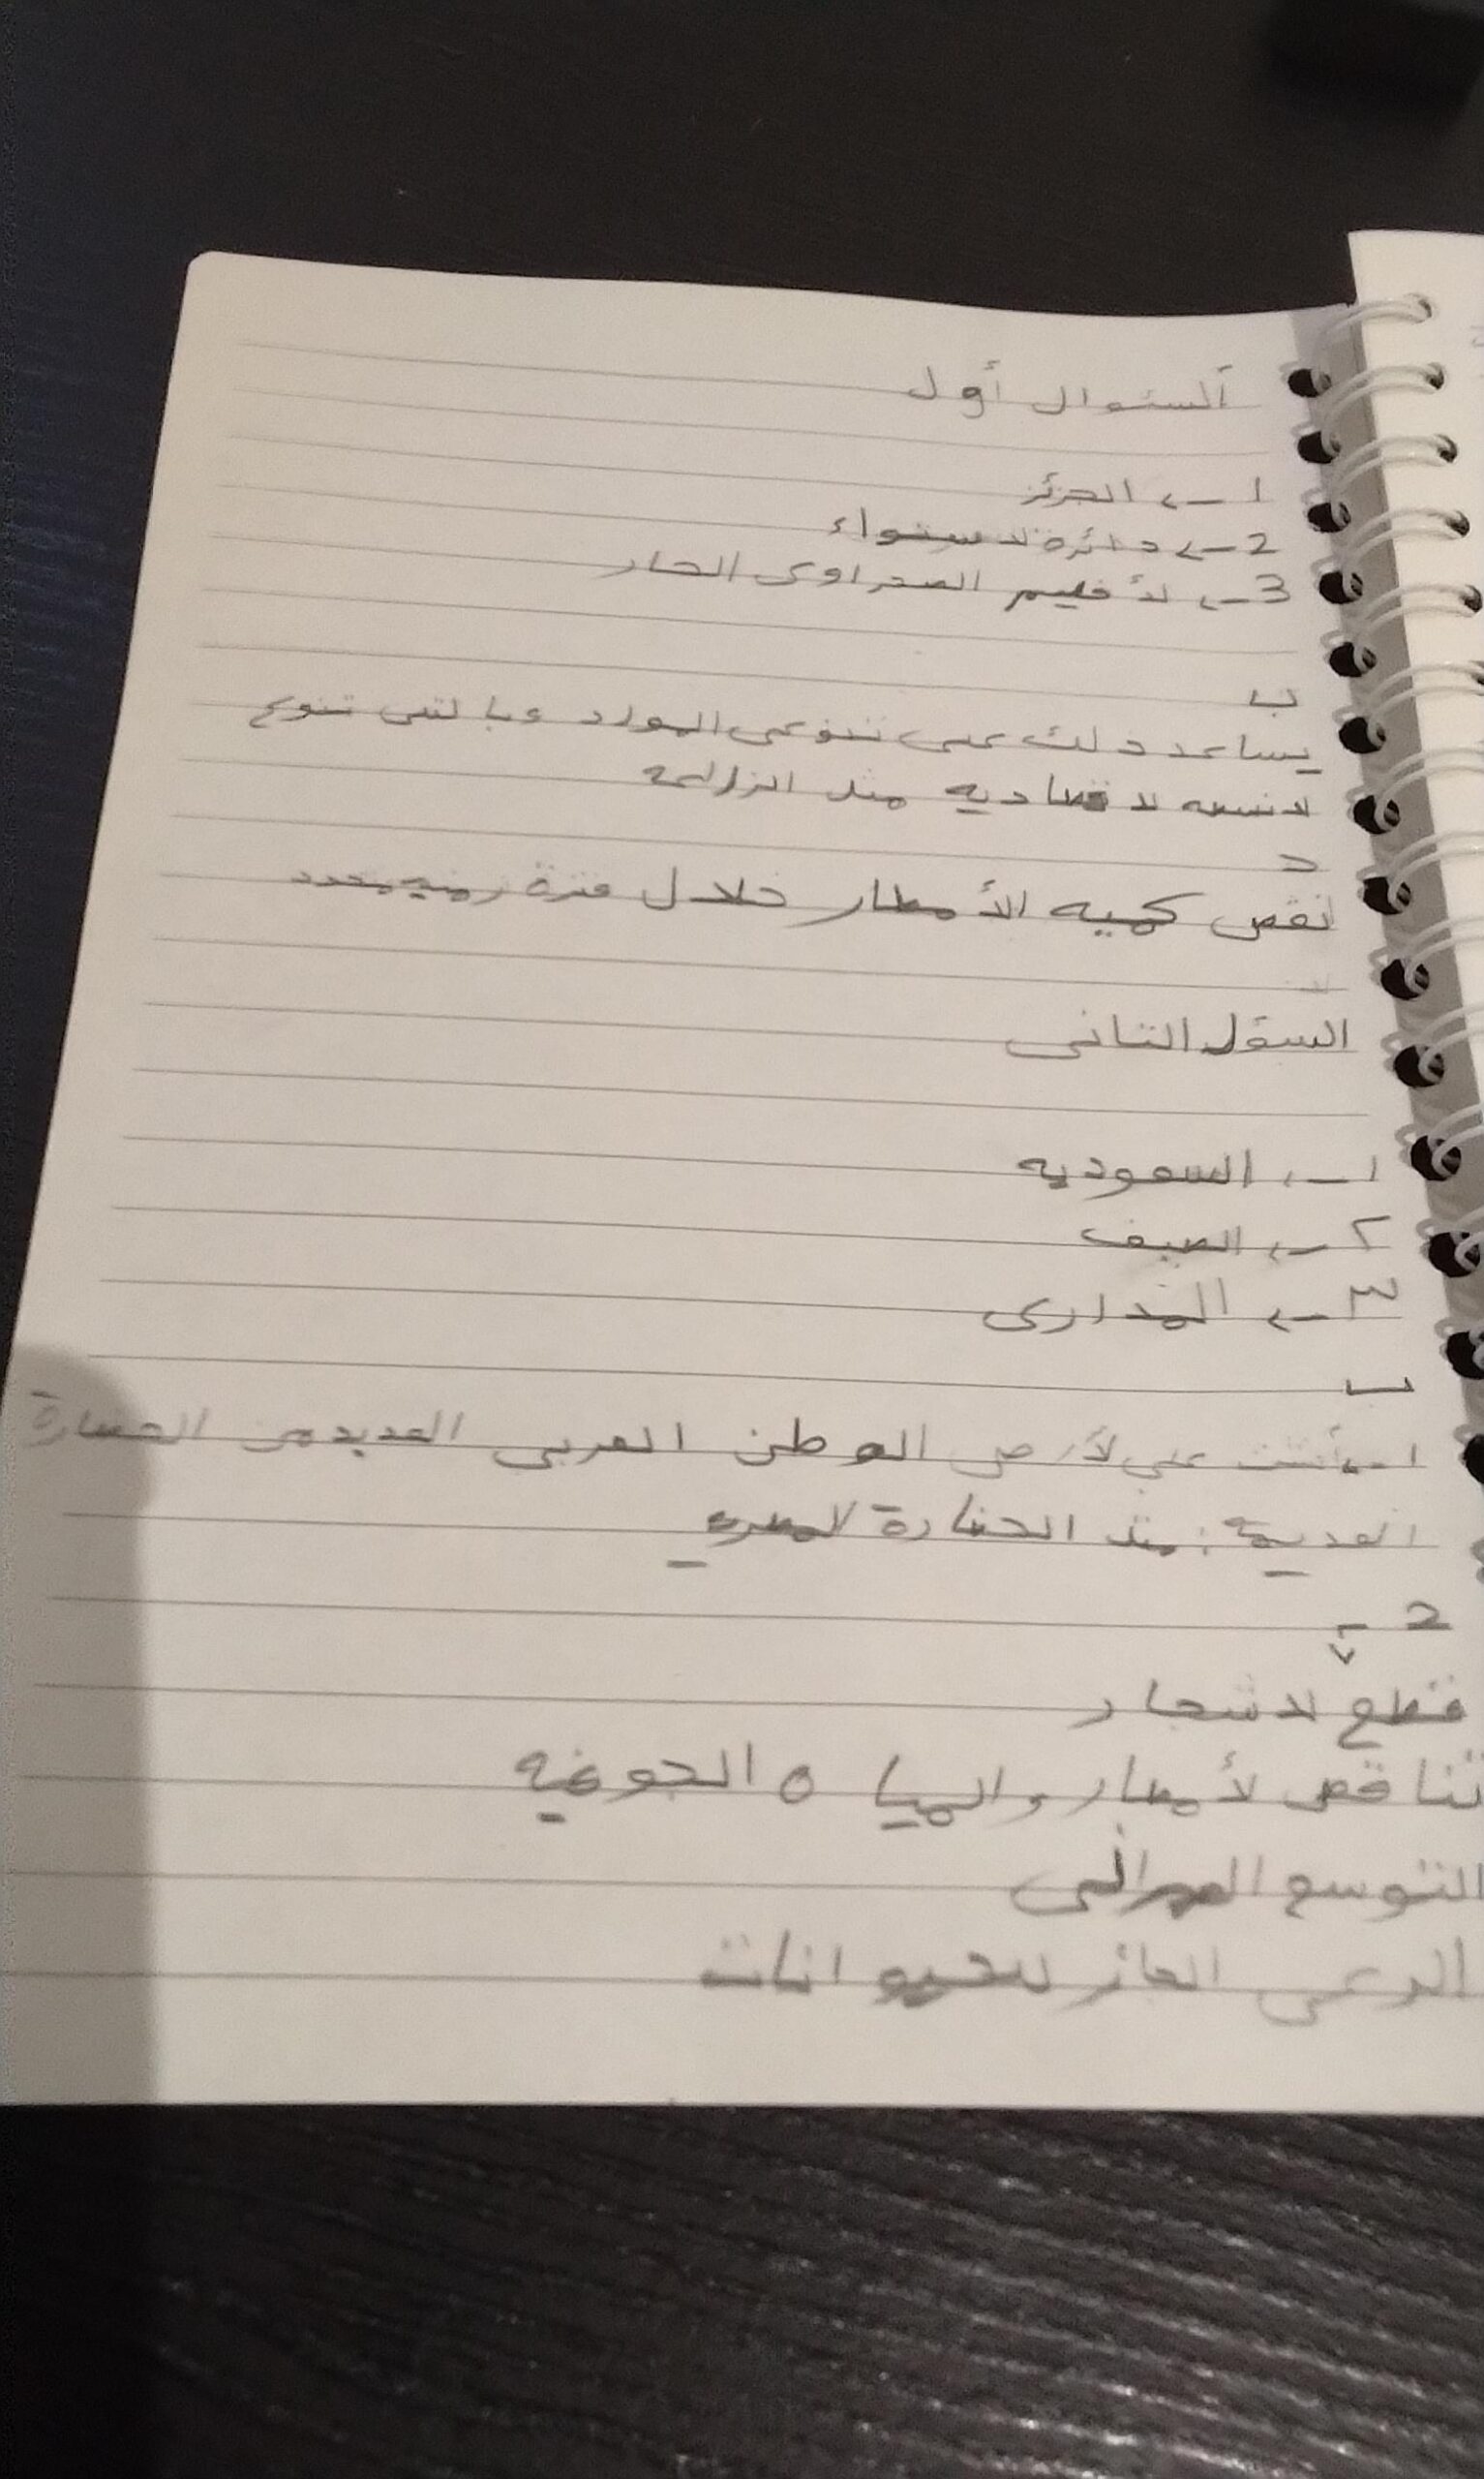 ألسئوال أول
1 ← الجزئر
2 ← دائرة لاستواء
3 ← لأقليم الصحراوى الحار
ب
يساعد ذلك على تنوعى الموارد وبا لتى تنوع
لانسه لاقصاديه مثل الزراعه
ج
نقص كميه الأمطار خلال فترة زمنيه
السؤل الثانى
١ ← السعوديه
٢ ← الصيف
٣ ← المدارى
ب
١ ← على لأرض الوطن العربى العديد من الحضارة
القديمه : مثل الحضارة لمصريه
2 ←
قطع لاشجار
تناقص لأمطار والمياه الجوفيه
التوسع العمرانى
الرعى الجائر للحيوانات